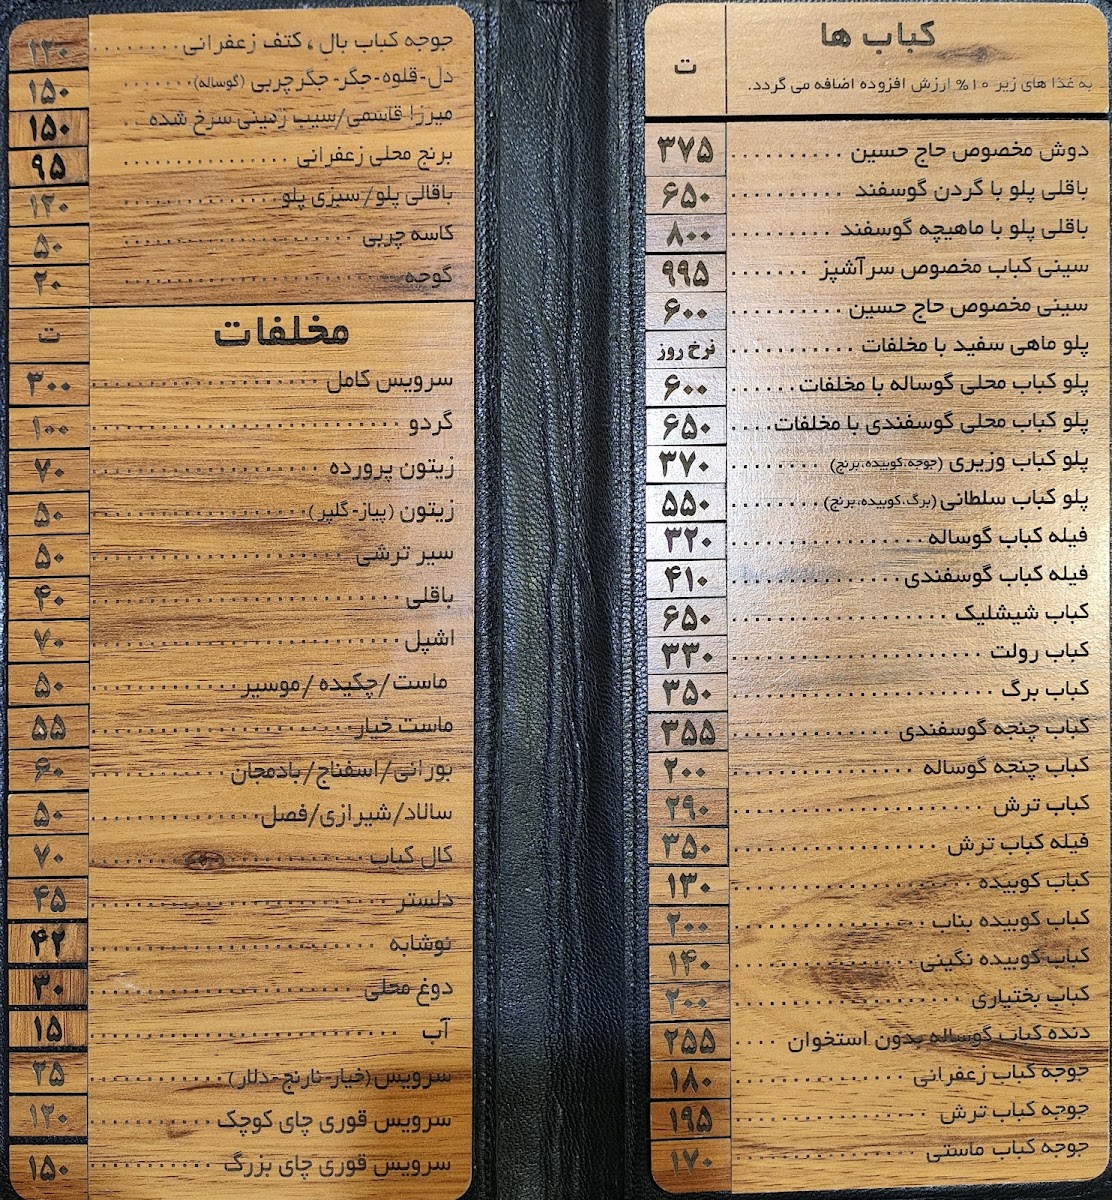 کباب ها
ت
به غذا های زیر ۱۰% ارزش افزوده اضافه می گردد.
دوش مخصوص حاج حسین .......... ۳۷۵
باقلی پلو با گردن گوسفند .......... ۶۵۰
باقلی پلو با ماهیچه گوسفند .......... ۸۰۰
سینی کباب مخصوص سرآشپز ....... ۹۹۵
سینی مخصوص حاج حسین .......... ۶۰۰
پلو ماهی سفید با مخلفات .......... نرخ روز
پلو کباب محلی گوساله با مخلفات ...... ۶۰۰
پلو کباب محلی گوسفندی با مخلفات .... ۶۵۰
پلو کباب وزیری (جوجه،کوبیده،برنج) ........ ۳۷۰
پلو کباب سلطانی (برگ،کوبیده،برنج) ........ ۵۵۰
فیله کباب گوساله ................ ۳۲۰
فیله کباب گوسفندی .............. ۴۱۰
کباب شیشلیک .................. ۶۵۰
کباب رولت ..................... ۳۳۰
کباب برگ ...................... ۳۵۰
کباب چنجه گوسفندی .............. ۳۵۵
کباب چنجه گوساله ............... ۲۰۰
کباب ترش ..................... ۲۹۰
فیله کباب ترش ................. ۳۵۰
کباب کوبیده .................... ۱۳۰
کباب کوبیده بناب ................ ۲۰۰
کباب کوبیده نگینی ............... ۱۴۰
کباب بختیاری ................... ۲۰۰
دنده کباب گوساله بدون استخوان .... ۲۵۵
جوجه کباب زعفرانی .............. ۱۸۰
جوجه کباب ترش ................ ۱۹۵
جوجه کباب ماستی ............... ۱۷۰
جوجه کباب بال ، کتف زعفرانی ......... ۱۲۰
دل-قلوه-جگر-جگرچربی (گوساله) ....... ۱۵۰
میرزا قاسمی/سیب زمینی سرخ شده .. ۱۵۰
برنج محلی زعفرانی ................ ۹۵
باقالی پلو/سبزی پلو ................ ۱۲۰
کاسه چربی ...................... ۵۰
گوجه ......................... ۲۰
مخلفات
ت
سرویس کامل .................... ۳۰۰
گردو .......................... ۱۰۰
زیتون پرورده .................... ۷۰
زیتون (پیاز-گلپر) .................. ۵۰
سیر ترشی ...................... ۵۰
باقلی .......................... ۴۰
اشپل .......................... ۷۰
ماست/چکیده/موسیر .............. ۵۰
ماست خیار ...................... ۵۵
بورانی/اسفناج/بادمجان ............. ۶۰
سالاد/شیرازی/فصل ................ ۵۰
کال کباب ....................... ۷۰
دلستر ......................... ۴۵
نوشابه ......................... ۴۲
دوغ محلی ...................... ۳۰
آب ........................... ۱۵
سرویس(خیار-نارنج-دلار) ............ ۲۵
سرویس قوری چای کوچک ............ ۱۲۰
سرویس قوری چای بزرگ ............ ۱۵۰